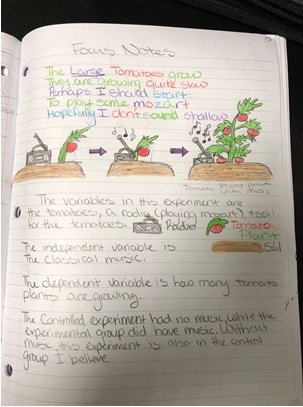 Focus Notes
The Large Tomatoes grow
They are growing quite slow
Perhaps I should start
To play some mozart
Hopefully I dont sound shallow
Tomato Plant Growth
With Music
The variables in this experiment are
the tomatoes, a radio (playing mozart), & soil
for the tomatoes.
Radio
Tomato
Plant
Soil
The independent variable is
the classical music.
The dependent variable is how many tomato
plants are growing.
The Controlled experiment had no music, while the
experimental group did have music. Without
music, this experiment is also in the control
group I believe.